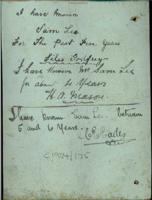 I have known
Sam Lee
For The Past Five Years
Giles Godfrey
I have known Mr Sam Lee
for about 4 Years
H. A. Mason.
I have known Sam Lee. Between
5 and 6 Years.
C1904/175